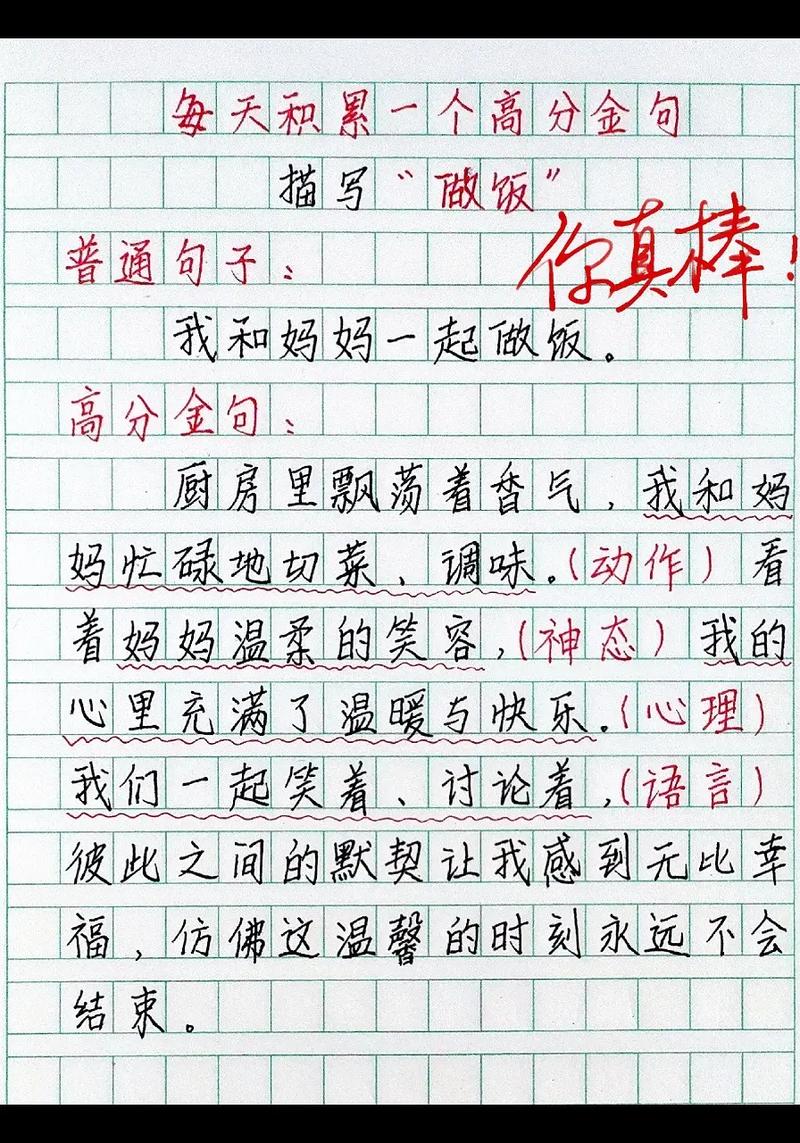 每天积累一个高分金句
描写“做饭”
你真棒！
普通句子：
我和妈妈一起做饭。
高分金句：
厨房里飘荡着香气，我和妈
妈忙碌地切菜、调味。（动作）看
着妈妈温柔的笑容，（神态）我的
心里充满了温暖与快乐。（心理）
我们一起笑着、讨论着，（语言）
彼此之间的默契让我感到无比幸
福，仿佛这温馨的时刻永远不会
结束。